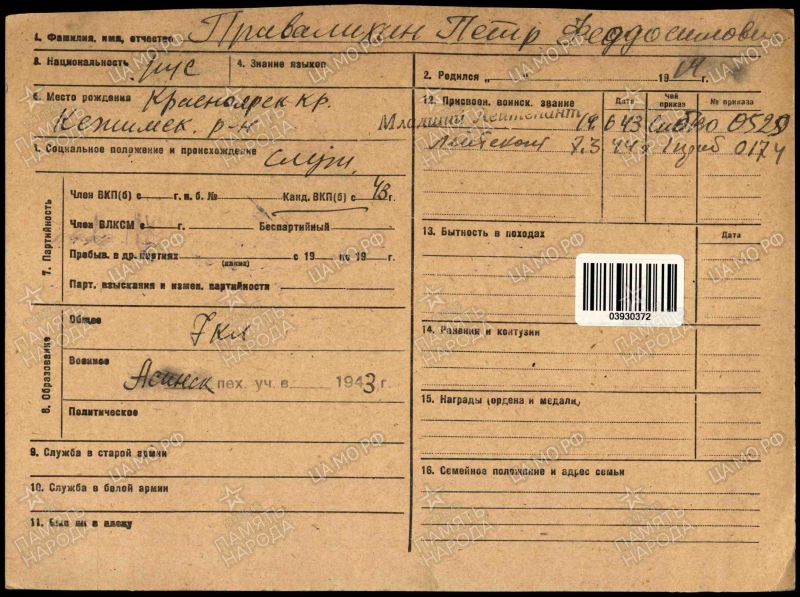 1. Фамилия, имя, отчество Привалихин Петр Феддосимович
3. Национальность рус 4. Знание языков
2. Родился „ “ 19 г.
5. Место рождения Красноярск кр.
Кежимск. р-н
6. Социальное положение и происхождение служ.
7. Партийность
Член ВКП(б) с г. п. б. № Канд. ВКП(б) с 43 г.
Член ВЛКСМ с г. Беспартийный
Пребыв. в др. партиях с 19 по 19 г.
(каких)
Парт. взыскания и измен. партийности
8. Образование
Общее 7 кл
Военное
Асинск пех. уч. в 1943 г.
Политическое
9. Служба в старой армии
10. Служба в белой армии
11. Был ли в плену
12. Присвоен. воинск. звание Дата Чей приказ № приказа
Младший Лейтенант 19.6 43 СибВО 0525
Лейтенант 7.3 44 0174
13. Бытность в походах Дата
03930372
14. Ранения и контузии
15. Награды (ордена и медали)
16. Семейное положение и адрес семьи
ПАМЯТЬ НАРОДА
ЦАМО.РФ